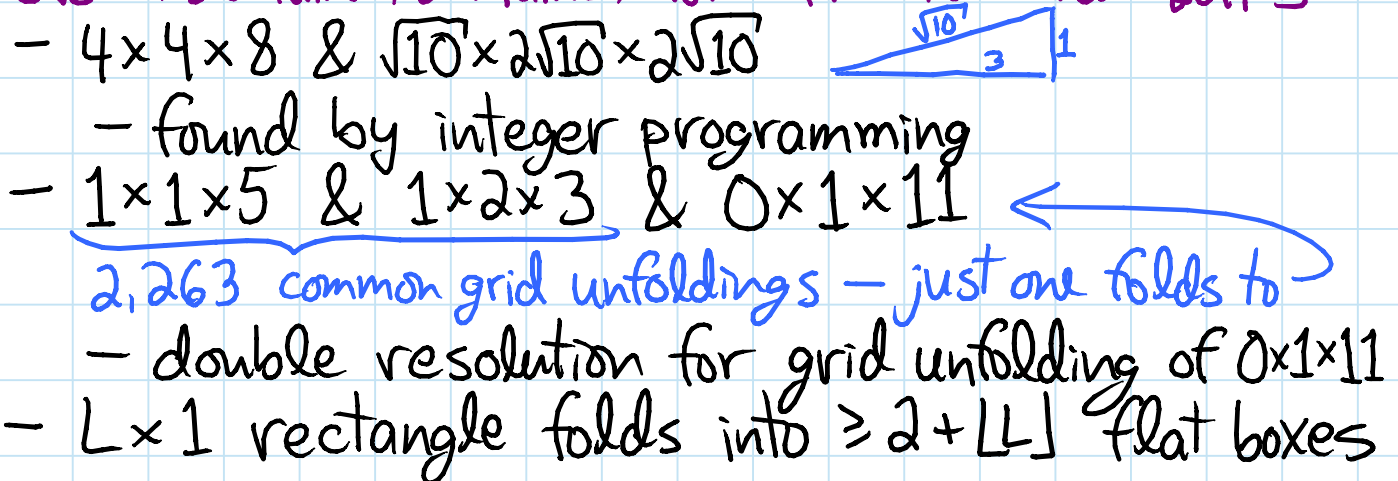 - 4×4×8 & √10×2√10×2√10 √10 3 1
- found by integer programming
- 1×1×5 & 1×2×3 & 0×1×11
2,263 common grid unfoldings — just one folds to
- double resolution for grid unfolding of 0×1×11
- L×1 rectangle folds into ≥ 2+⌊L⌋ flat boxes